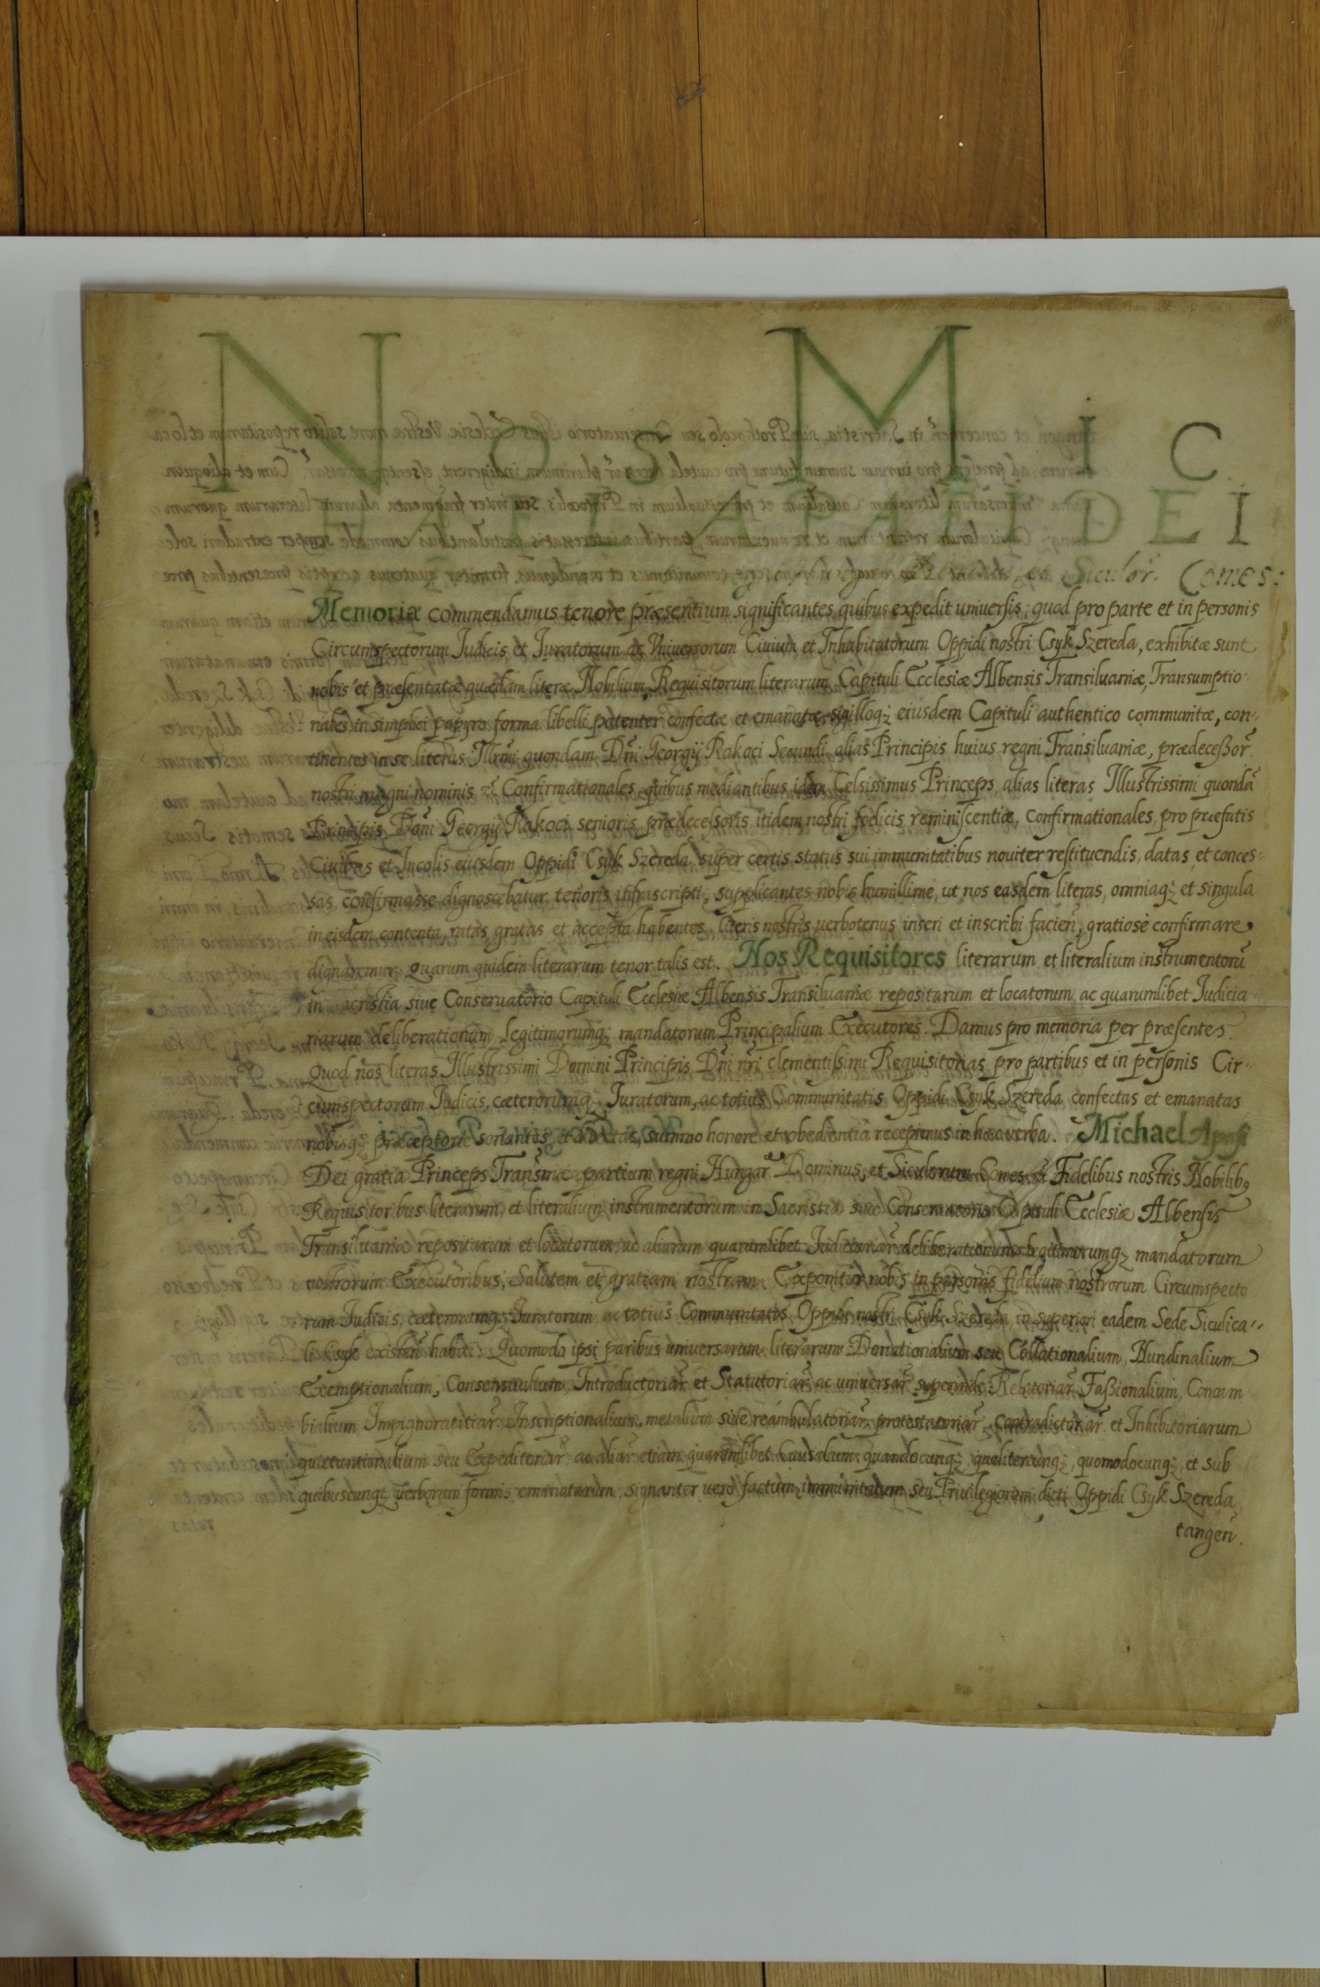 NOS MIC
HAEL APAFI DEI
et Siculor. Comes:
Memoriæ commendamus tenore præsentium significantes quibus expedit universis; quod pro parte et in personis
Circumspectorum Judicis et Juratorum ac Universorum Civium et Inhabitatorum Oppidi nostri Csyk Szereda, exhibitæ sunt
nobis et præsentatæ quædam literæ Nobilium Requisitorum literarum Capituli Ecclesiæ Albensis Transiluaniæ, Transumptio
nales in simplici papyro forma libelli patenter confectæ et emanatæ, sigilloq; eiusdem Capituli authentico communitæ, con-
tinentes in se literas Illrmi quondam Dni Georgij Rakoci Secundi, alias Principis huius regni Transiluaniæ, prædeceßor
nostri magni nominis Confirmationales, quibus mediantibus idem Celsissimus Princeps, alias literas Illustrissimi quondã
Principis Dni Georgij Rakoci senioris, prædecessoris itidem nostri fœlicis reminiscentiæ, Confirmationales, pro præfatis
Civibus et Incolis eiusdem Oppidi Csyk Szereda super certis status sui immunitatibus noviter restituendis, datas et conces-
sas confirmasse dignoscebatur, tenoris infrascripti, supplicantes nobis humillime, ut nos easdem literas, omniaq; et singula
in eisdem contenta, ratas, gratas et accepta habentes, literis nostris verbotenus inseri et inscribi facien, gratiose confirmare
dignaremur. Quarum quidem literarum tenor talis est. Nos Requisitores literarum et literalium instrumentorũ
in acristia siue Conseruatorio Capituli Ecclesiæ Albensis Transiluaniæ repositarum et locatorum ac quarumlibet Judicia
riarum deliberationum legitimorumq; mandatorum Principalium Executores. Damus pro memoria per præsentes.
Quod nos literas Illustrissimi Domini Principis Dni nri clementissimi Requisitorias pro partibus et in personis Cir-
cumspectorum Judicis, cæterorumq; Juratorum, ac totius Communitatis Oppidi Csyk Szereda confectas et emanatas
nobisq; præceptorie sonantes et directas, summo honore et obedientia recepimus in hæc verba. Michael Apafi
Dei gratia Princeps Transniæ partium regni Hungar Dominus, et Siculorum Comes Fidelibus nostris Nobilib9
Requisitoribus literarum et literalium instrumentorum in Sacristia siue Conseruatorio Capituli Ecclesiæ Albensis
Transiluaniæ repositarum et locatorum, ac aliarum quarumlibet Judiciariar deliberationum legitimorumq; mandatorum
nostrorum Executoribus, Salutem et gratiam nostram. Exponitur nobis in personis fidelium nostrorum Circumspecto
rum Judicis, cæterorumq; Juratorum ac totius Communitatis Oppidi nostri Csyk Szereda in superiori eadem Sede Siculica-
li existen habiti: Quomodo ipsi paribus universarum literarum Donationalium seu Collationalium, Hundinalium
Exemptionalium, Consensualium, Introductoriar et Statutoriar ac universar Relatoriar Faßionalium, Concam
bialium Impignoratitiar Inscriptionalium, metalium siue reambulatoriar, protestatoriar, contradictoriar et Inhibitoriarum
quietantionalium seu Expeditoriar ac aliar etiam quarumlibet Causalium quandocunq;, qualitercunq;, quomodocunq; et sub
quibuscunq; verborum formis emanatarum, signanter vero factum immunitatum seu Privilegiorum dicti Oppidi Csyk Szereda
tangen.